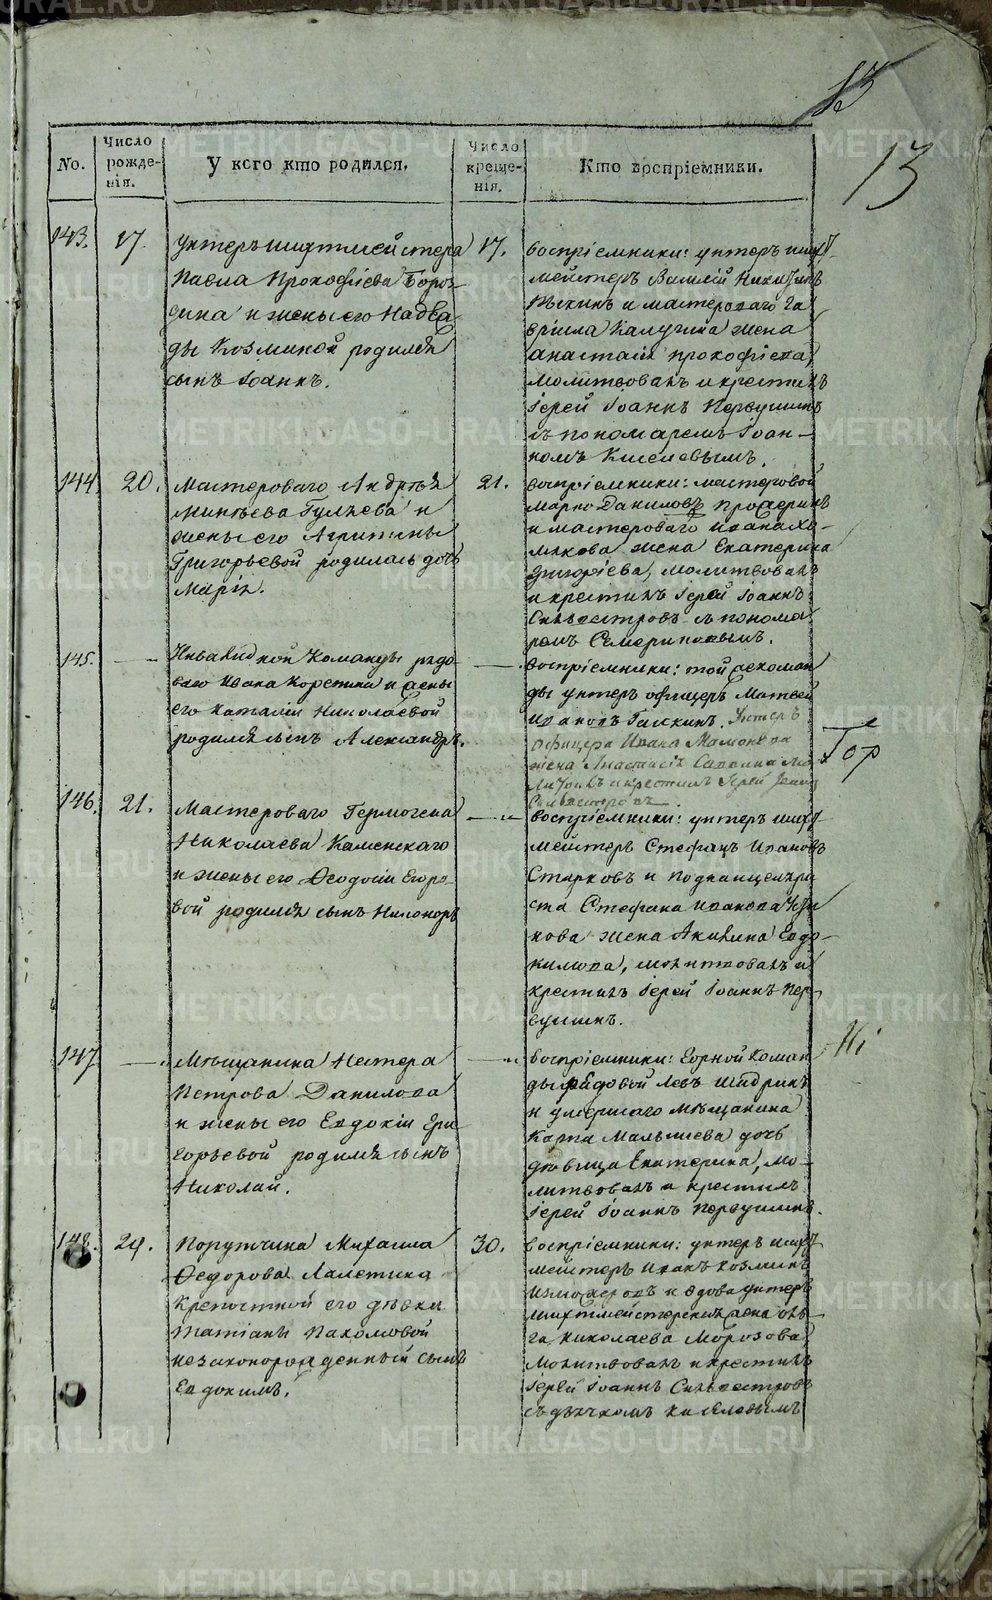 13
13
No.
Число рожде-нія.
У кого кто родился.
Число креще-нія.
Кто воспріемники.
143.
17.
Унтеръ шихтмейстера
Павла Прокофіева Бороз-
дина и жены его Надеж-
ды Козминой родился
сынъ Іоаннъ.
17.
воспріемники: унтеръ шихт-
мейстеръ Василій Никитинъ
и мастероваго Га-
вріила Калугина жена
Анастасія Прокофіева,
молитвовалъ и крестилъ
Іерей Іоаннъ Первушинъ
съ пономаремъ Іоан-
номъ Киселевымъ.
144.
20.
Мастероваго Андрея
Гуляева и
жены его Агрипины
Григорьевой родилась дочь
Марія.
21.
воспріемники: мастеровой
Марко Даниловъ
и мастероваго Ивана Хо-
мякова жена Екатерина
Григоріева, молитвовалъ
и крестилъ Іерей Іоаннъ
Сильвестровъ съ понома
ремъ
145.
Инвалидной команды рядо-
ваго Ивана и жены
его Наталіи Николаевой
родился сынъ Александръ.
воспріемники: той же коман
ды унтеръ офицеръ Матвей
Ивановъ Унтеръ
офицера Ивана
жена Анастасія Саввина мо
литвов. и крестилъ Іерей Іоаннъ
Сильвестровъ.
146.
21.
Мастероваго Гермогена
Николаева Каменскаго
и жены его Ѳеодосіи Егоро-
вой родился сынъ Никоноръ
воспріемники: унтеръ шихт-
мейстеръ Стефанъ Ивановъ
Старковъ и подканцеляри
ста Стефана Иванова
жена Акилина Евдо-
кимова, молитвовалъ и
крестилъ Іерей Іоаннъ Пер-
вушинъ.
147.
Мѣщанина Нестера
Петрова Данилова
и жены его Евдокіи Гри
горьевой родился сынъ
Николай.
воспріемники: Горной коман
ды рядовой Левъ Шадринъ
и умершаго мѣщанина
Карпа Малышева дочь
дѣвица Екатерина, мо-
литвовалъ и крестилъ
Іерей Іоаннъ Первушинъ.
148.
29.
Порутчика Михаила
Ѳедорова Лалетина
крепостной его дѣвки
Татіаны Пахомовой
незаконорожденный сынъ
Евдокимъ.
30.
воспріемники: унтеръ шихт-
мейстеръ Иванъ Козминъ
и вдова унтеръ
шихтмейстерская жена Оль-
га Николаева Морозова
молитвовалъ и крестилъ
Іерей Іоаннъ Сильвестровъ
съ дьячкомъ Киселевымъ
METRIKI.GASO-URAL.RU